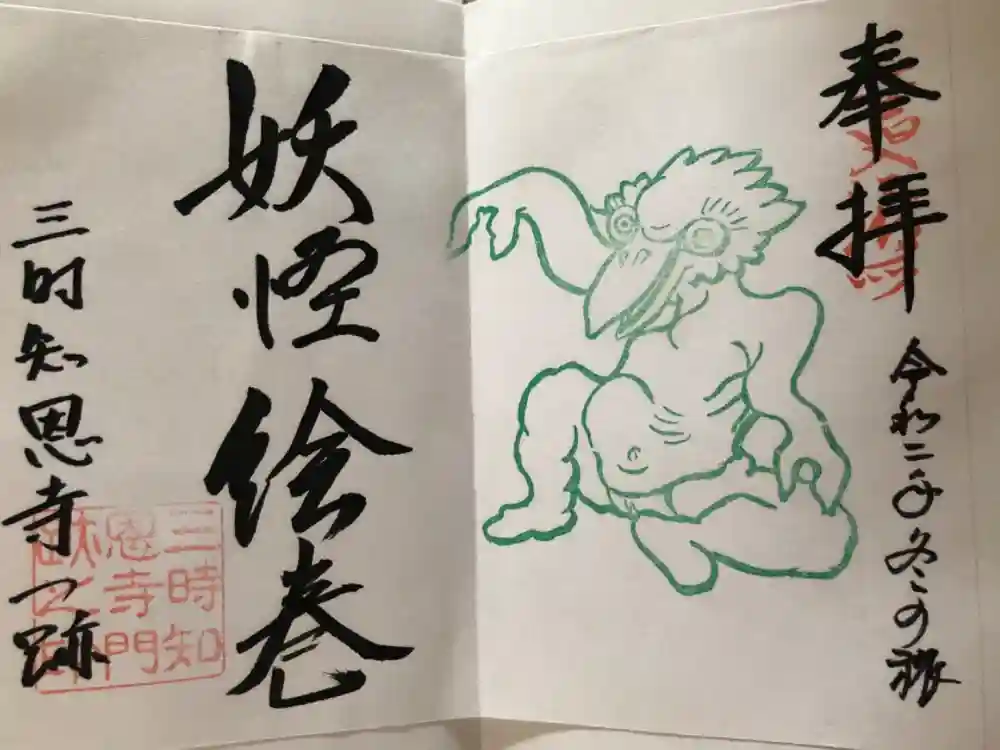 奉拝
令和二年冬の旅
妖怪絵巻
三時知恩寺門跡
三時知
恩寺門
跡之印